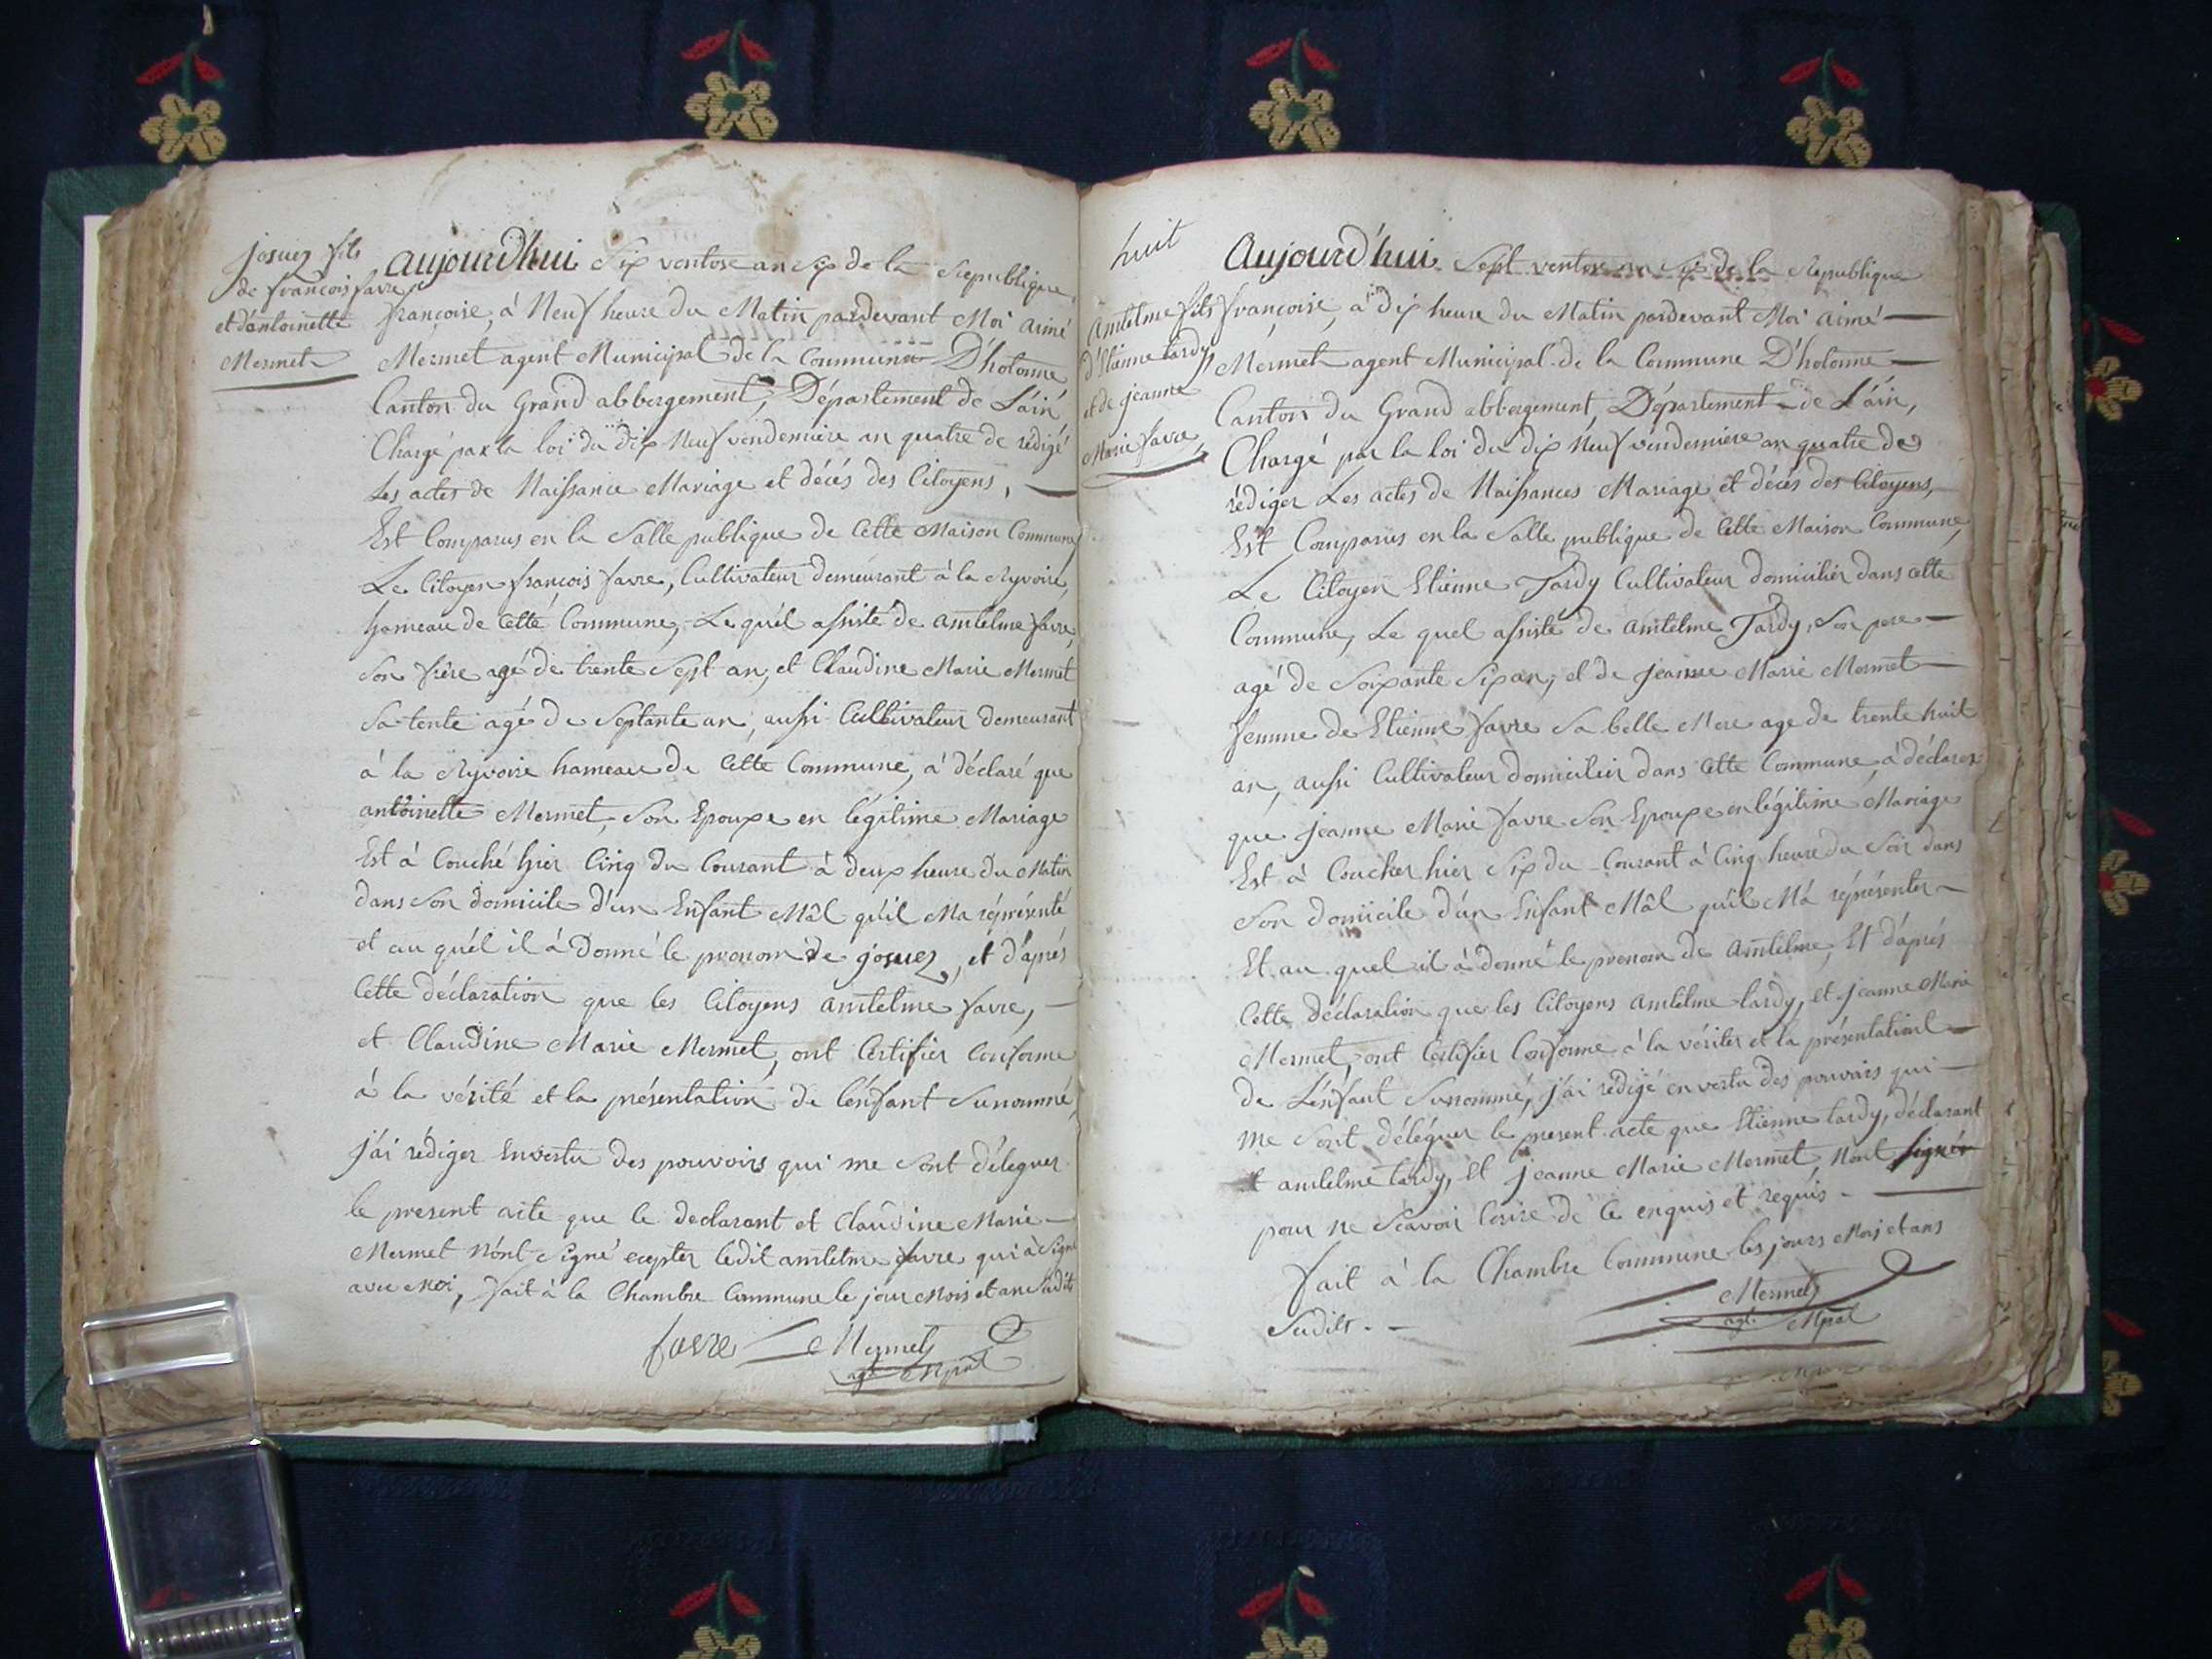 josuez fils
de françois favre
et d'antoinette
Mermet
aujourd'hui Six ventose an Six de la Republique
françoise, à Neuf heure du Matin pardevant Moi aimé
Mermet agent Municipal de la Commune D'hotonne
Canton du Grand abbergement, Département de L'áin
Chargé par la loi du dix Neuf vendemiere an quatre de rédigé
Les actes de Naissance Mariage et décés des Citoyens,
Est Comparus en la Salle publique de Cette Maison Commune
Le Citoyen françois favre, Cultivateur demeurant à la Ryvoire,
hameau de Cette Commune, Le quél assisté de amtelme favre,
Son frère agé de trente Sept an, et Claudine Marie Mermet
Sa tente agé de Septante an, aussi Cultivateur demeurant
à la Ryvoire hameau de Cette Commune, à déclaré que
antoinette Mermet, Son Epouxe en légitime Mariage
Est à Couché hier Cinq du Courant à deux heure du Matin
dans Son domicile d'un Enfant Mâl qu'il Ma répresenté
et au quél il à Donné le prenom de josuez, et d'aprés
Cette déclaration que les Citoyens amtelme favre,
et Claudine Marie Mermet, ont Certifier Conforme
à la vérité et la présentation de L'enfant Sunommé,
j'ái rédiger Envertu des pouvoirs qui me Sont déleguer
le present acte que le declarant et Claudine Marie
Mermet Nónt Signé ecepter ledit amtelme favre qui à Signé
avec Moi, fait à la Chambre Commune le jour Mois et an Sudits
favre Mermet
agt Mpal
huit
Amtelme fils
d'Etienne tardy
et de jeanne
Marie favre
Aujourd'hui Sept ventose an Six de la Republique
françoise, à dix heure du Matin pardevant Moi aimé
Mermet agent Municipal de la Commune D'hotonne
Canton du Grand abbergement, Département de L'áin,
Chargé par la loi du dix Neuf vendemiere an quatre de
rédiger Les actes de Naissances Mariage et décés des Citoyens,
Est Comparus en la Salle publique de Cette Maison Commune,
Le Citoyen Etienne Tardy Cultivateur domicilier dans cette
Commune, Le quel assisté de amtelme Tardy, Son pere
agé de Soixante Six an, et de jeanne Marie Mermet
femme de Etienne favre Sa belle Mere age de trente huit
an, aussi Cultivateur domicilier dans Cette Commune, à déclarer
que jeanne Marie favre Son Epouxe en légitime Mariage
Est à Coucher hier Six du Courant à Cinq heure du Soir dans
Son domicile d'un Enfant Mâl qu'il Má réprésenter
Et au quel il à donné le prenom de amtelme, Et d'aprés
Cette déclaration que les Citoyens amtelme tardy, et jeanne Marie
Mermet, ont Certifier Conforme à la vériter et la présentation
de L'énfant Sunommé, j'ái rédigé en vertu des pouvoirs qui
me Sont déléguer le present acte que Etienne tardy, déclarant
Et amtelme tardy, Et jeanne Marie Mermet, Nónt Signér
pour ne Scavoir Ecrire de Ce enquis et requis.
fait à la Chambre Commune les jours Mois et ans
Sudits.
Mermet
agt Mpal